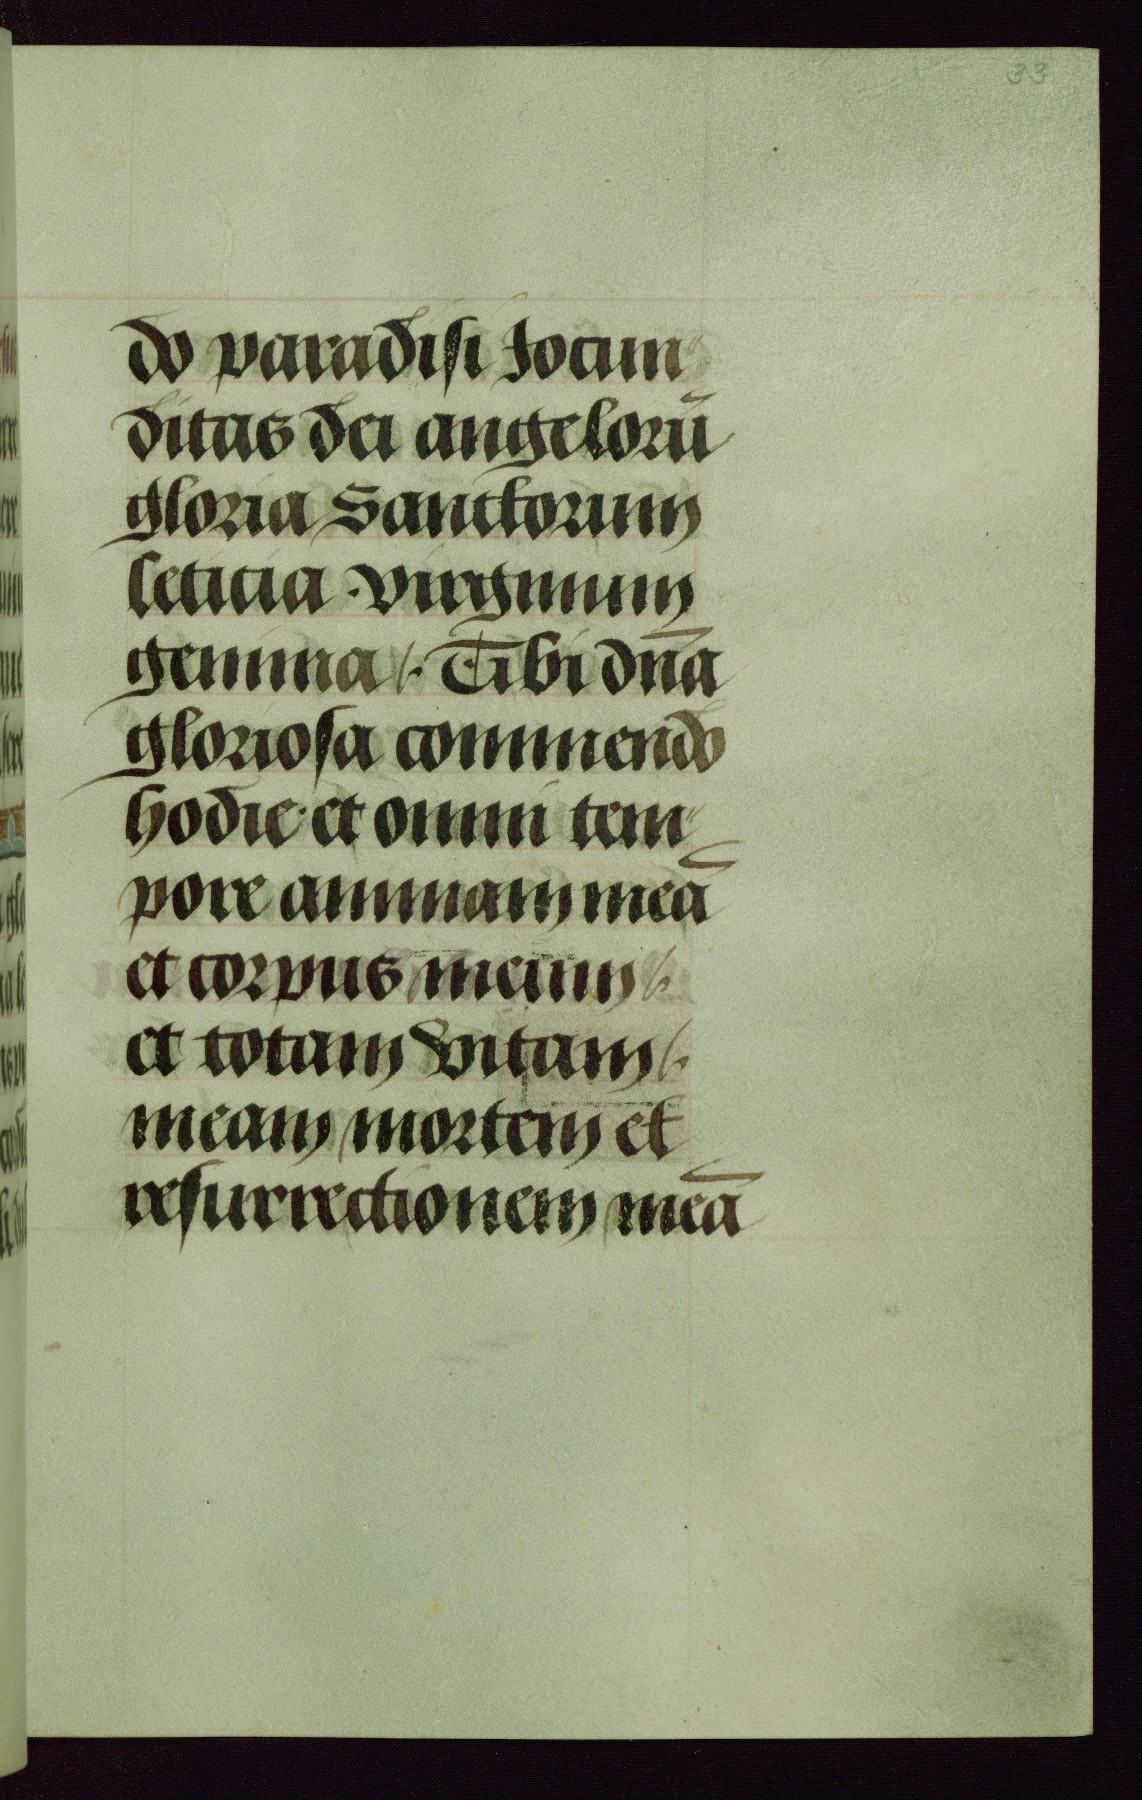 33
do paradisi Jocun
ditas dei angelorū
gloria Sanctorum
leticia · virginum
gemma /. Tibi dn̄a
gloriosa commendo
hodie · et omni tem
pore animam meā
et corpus meum /.
et totam vitam /.
meam mortem et
resurrectionem meā